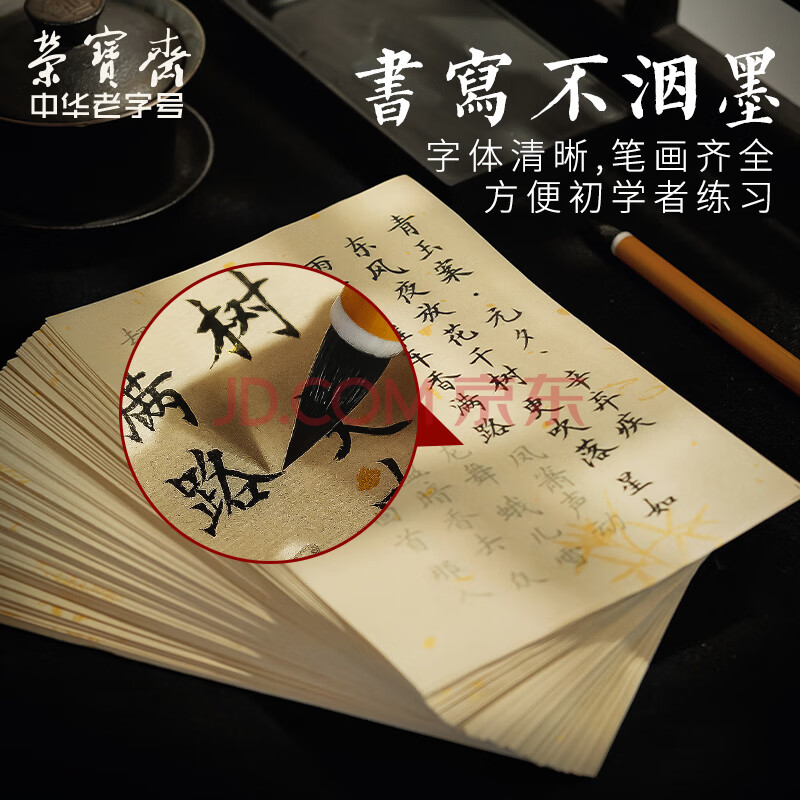 榮寶齋
中华老字号
書寫不洇墨
字体清晰,笔画齐全
方便初学者练习
青玉案·元夕·辛弃疾
东风夜放花千树更吹落星如
雨
车香满路凤箫声动
龙舞蛾儿雪
暗香去众
首那人
树
满
路
JD.COM 京东